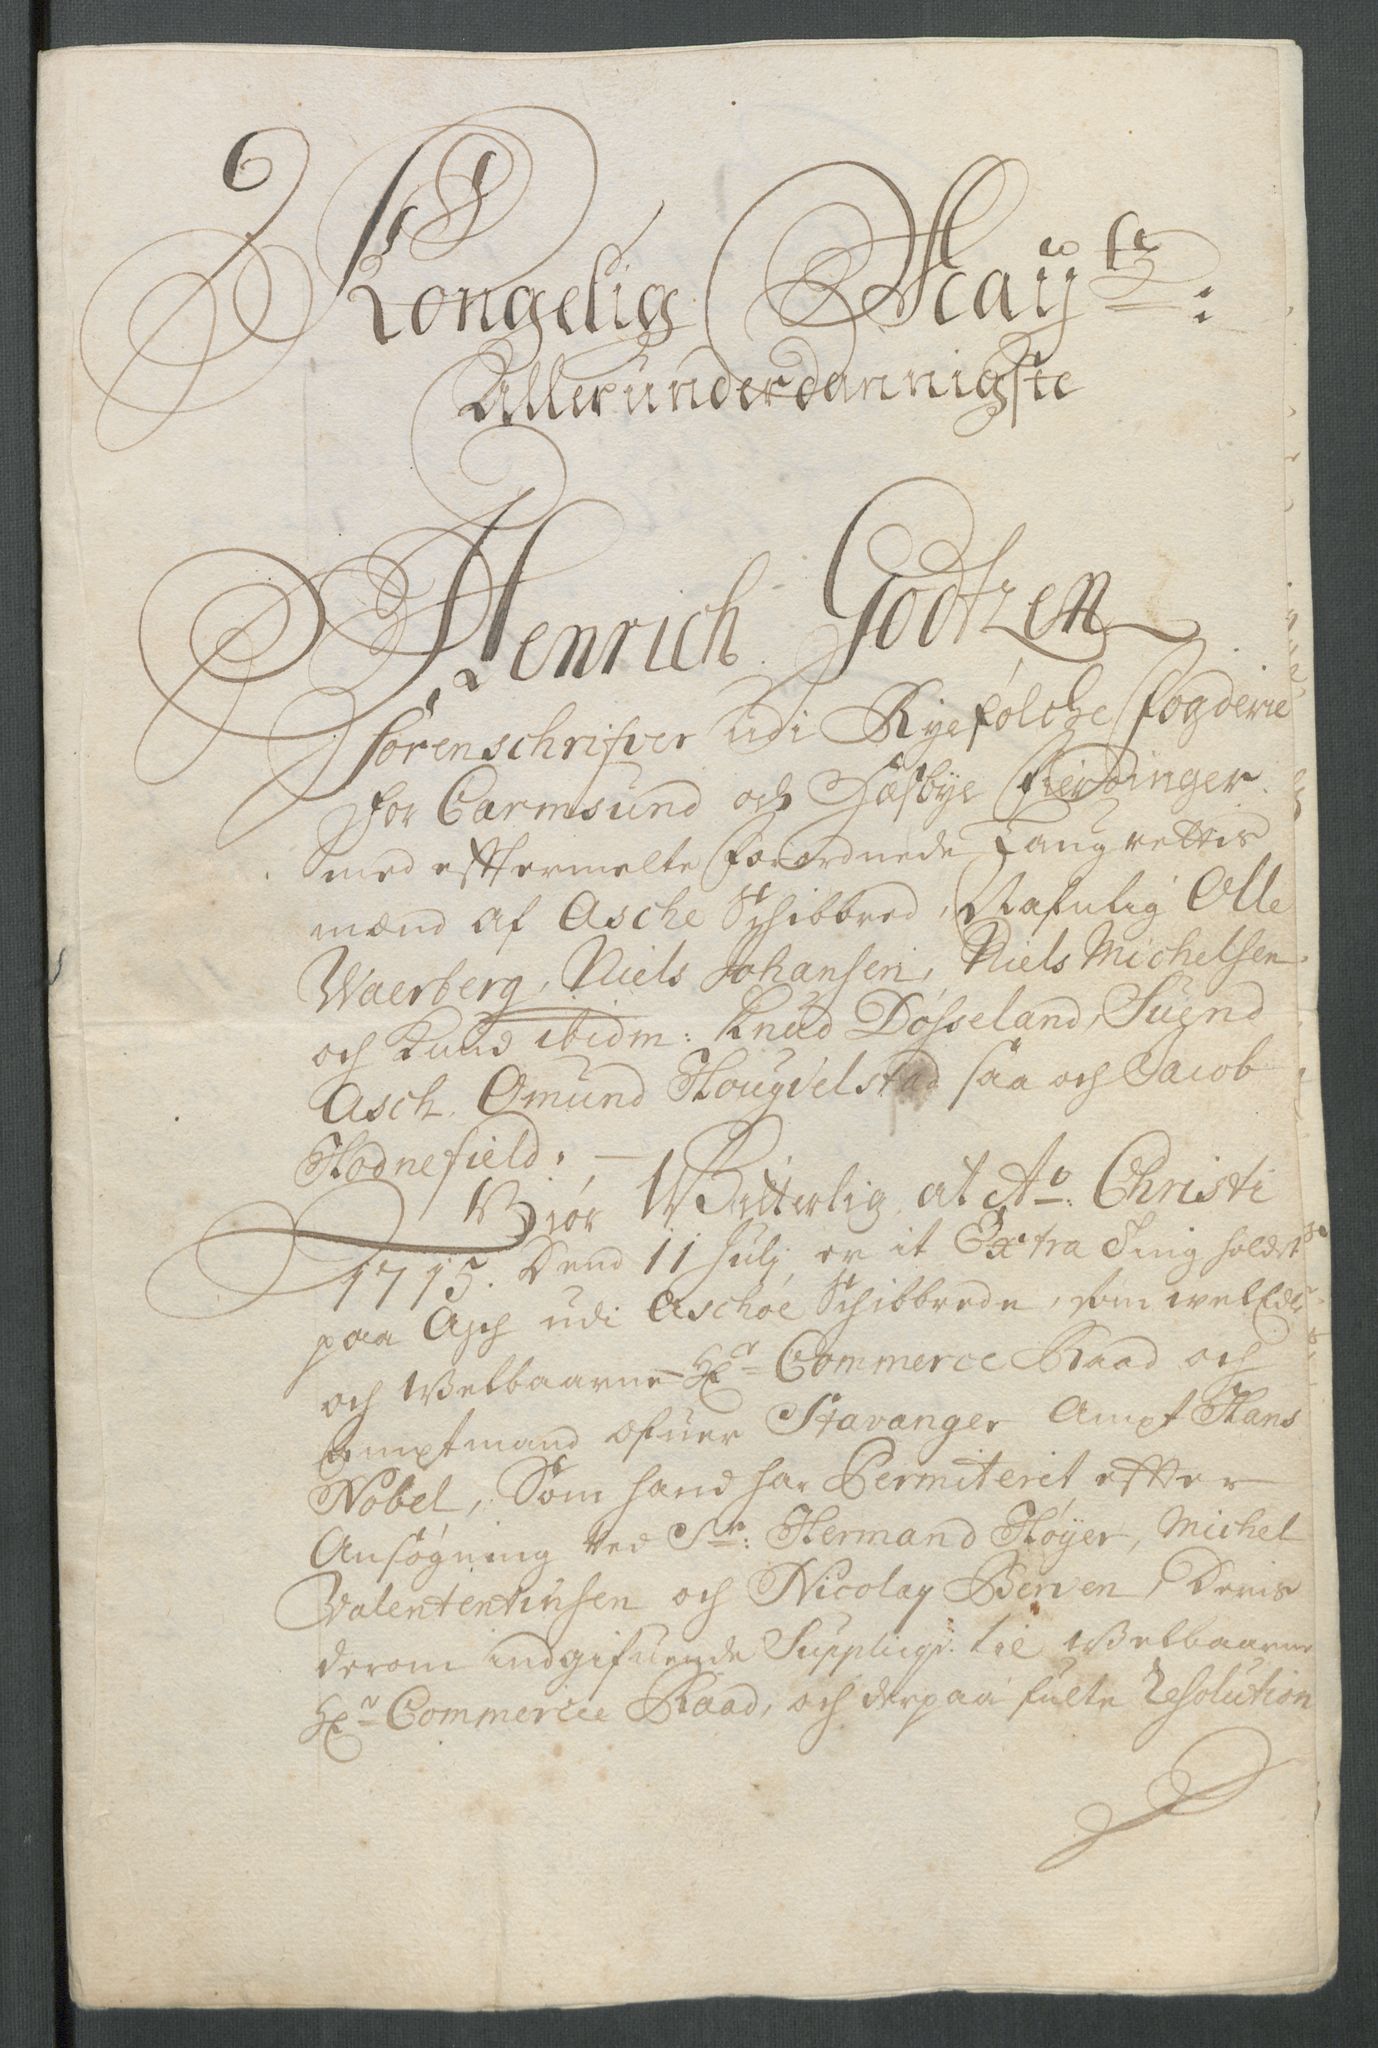 Kongelig Mayⁱˢ ᵗᵉ:
Allerunderdannigste
Henrich Godtzen
Sorenschrifver udi Ryefølche Fogderie
for Carmsund och Hæsbye Fierdinger
med eftermelte Forordnede Laugrettis
mænd af Asche Schibbred, Nafnlig Olle
Waerberg, Niels Johansen, Niels Michelsen
och Knud ibidm: Knud Døsseland, Suend
Asch. Omund Hougvelstad saa och Jacob
Hodnefield. —
Giør Witterlig at Ao: Christi
1715. Dend 11 Julj er it Extra Ting holdet
paa Asch udi Aschøe Schibbrede, som welEdle
och Welbaarne Hr Commerce Raad och
Amptmand ofuer Stavanger Ampt Hans
Nobel, Som hand har Permiteret efter
Ansøgning ved Sr: Hermand Høyer, Michel
Valententinsen och Nicolay Bersven, Deris
derom indgifuende Suppliqe til Welbaarne
Hr Commerce Raad, och derpaa fulte Resolution